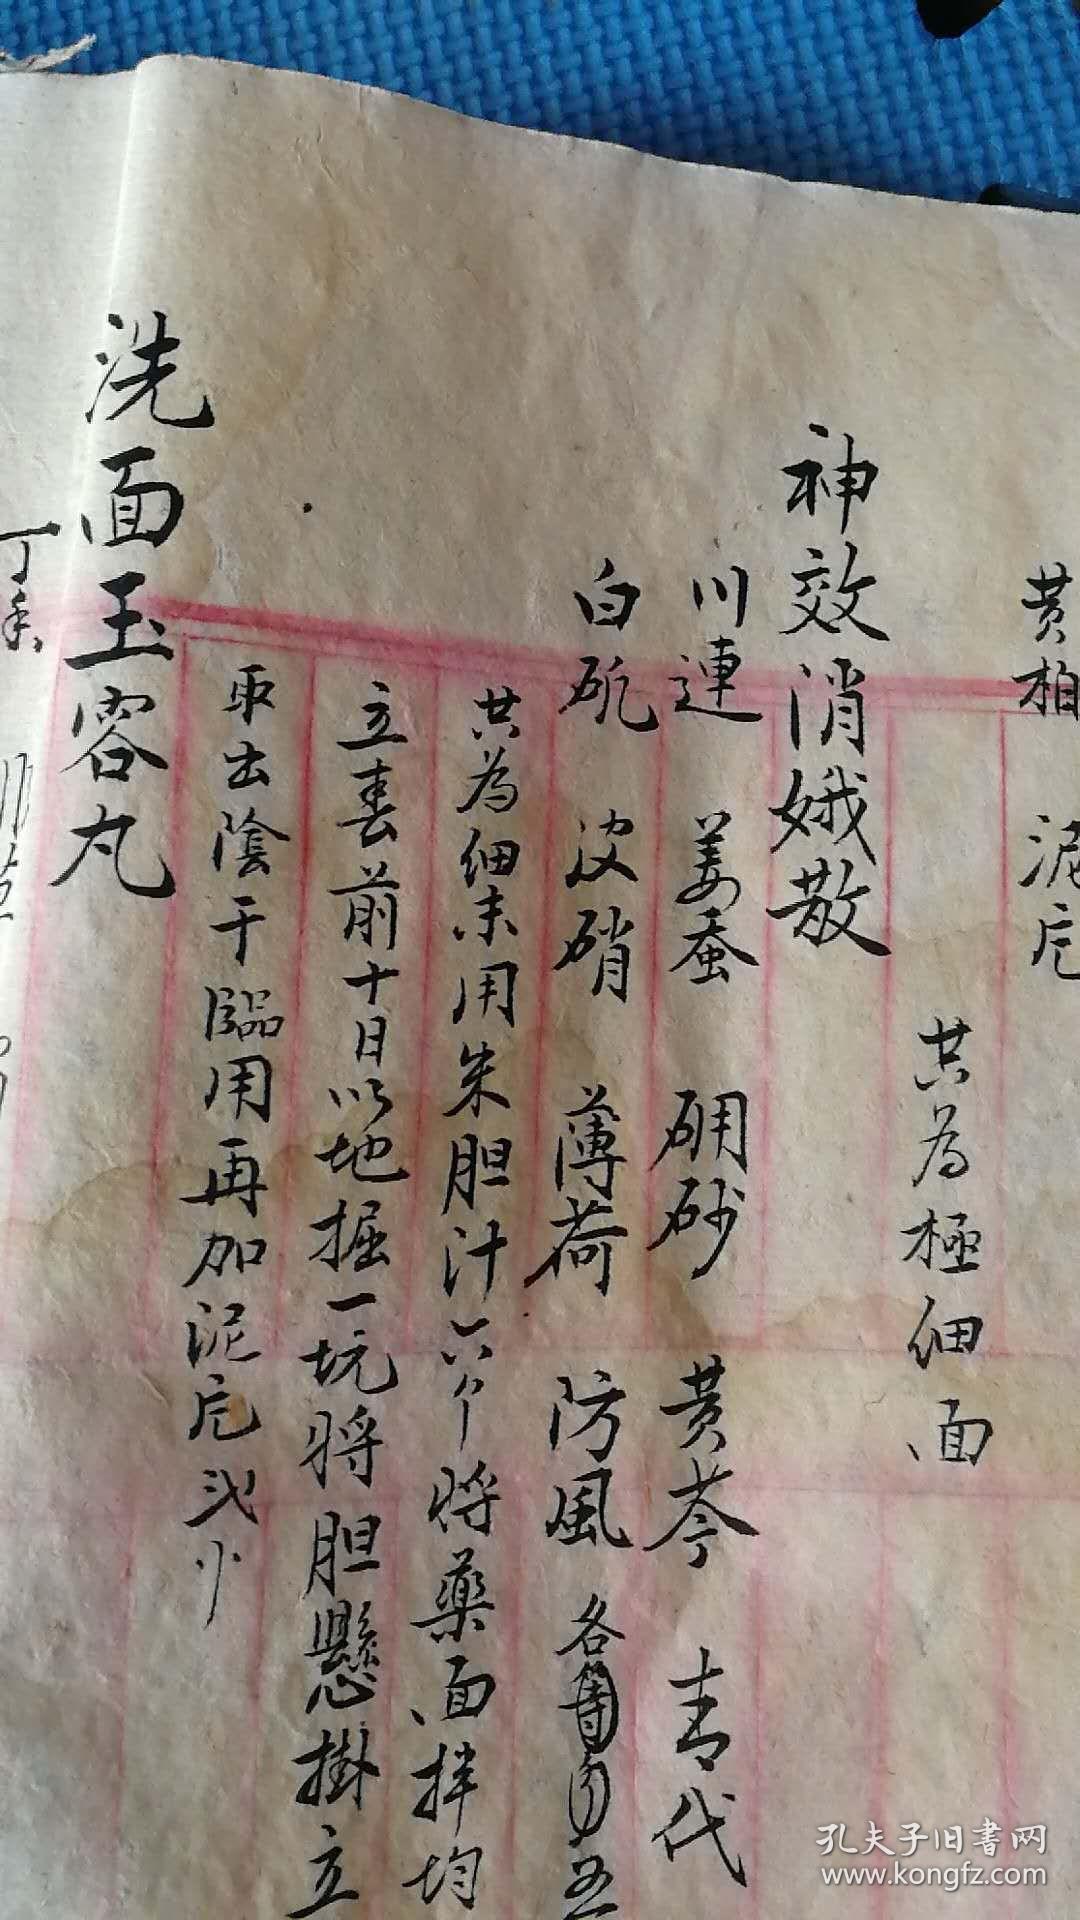 黄柏 泥片
共為極细面
神效消娥散
川連 姜蚕 硼砂 黄芩 青代
白矾 皮硝 薄荷 防風 各五
共為细末用朱胆汁六个将藥面拌均
立春前十日以地掘一坑将胆懸掛立
取出陰干臨用再加泥片弍分
洗面玉容丸
丁香
孔夫子旧書网
www.kongfz.com